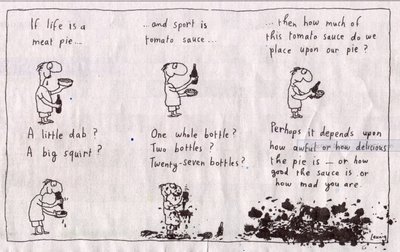 If life is a
meat pie...
...and sport is
tomato sauce...
...then how much of
this tomato sauce do we
place upon our pie?
A little dab?
A big squirt?
One whole bottle?
Two bottles?
Twenty-seven bottles?
Perhaps it depends upon
how awful or how delicious
the pie is — or how
good the sauce is or
how mad you are.
Leunig